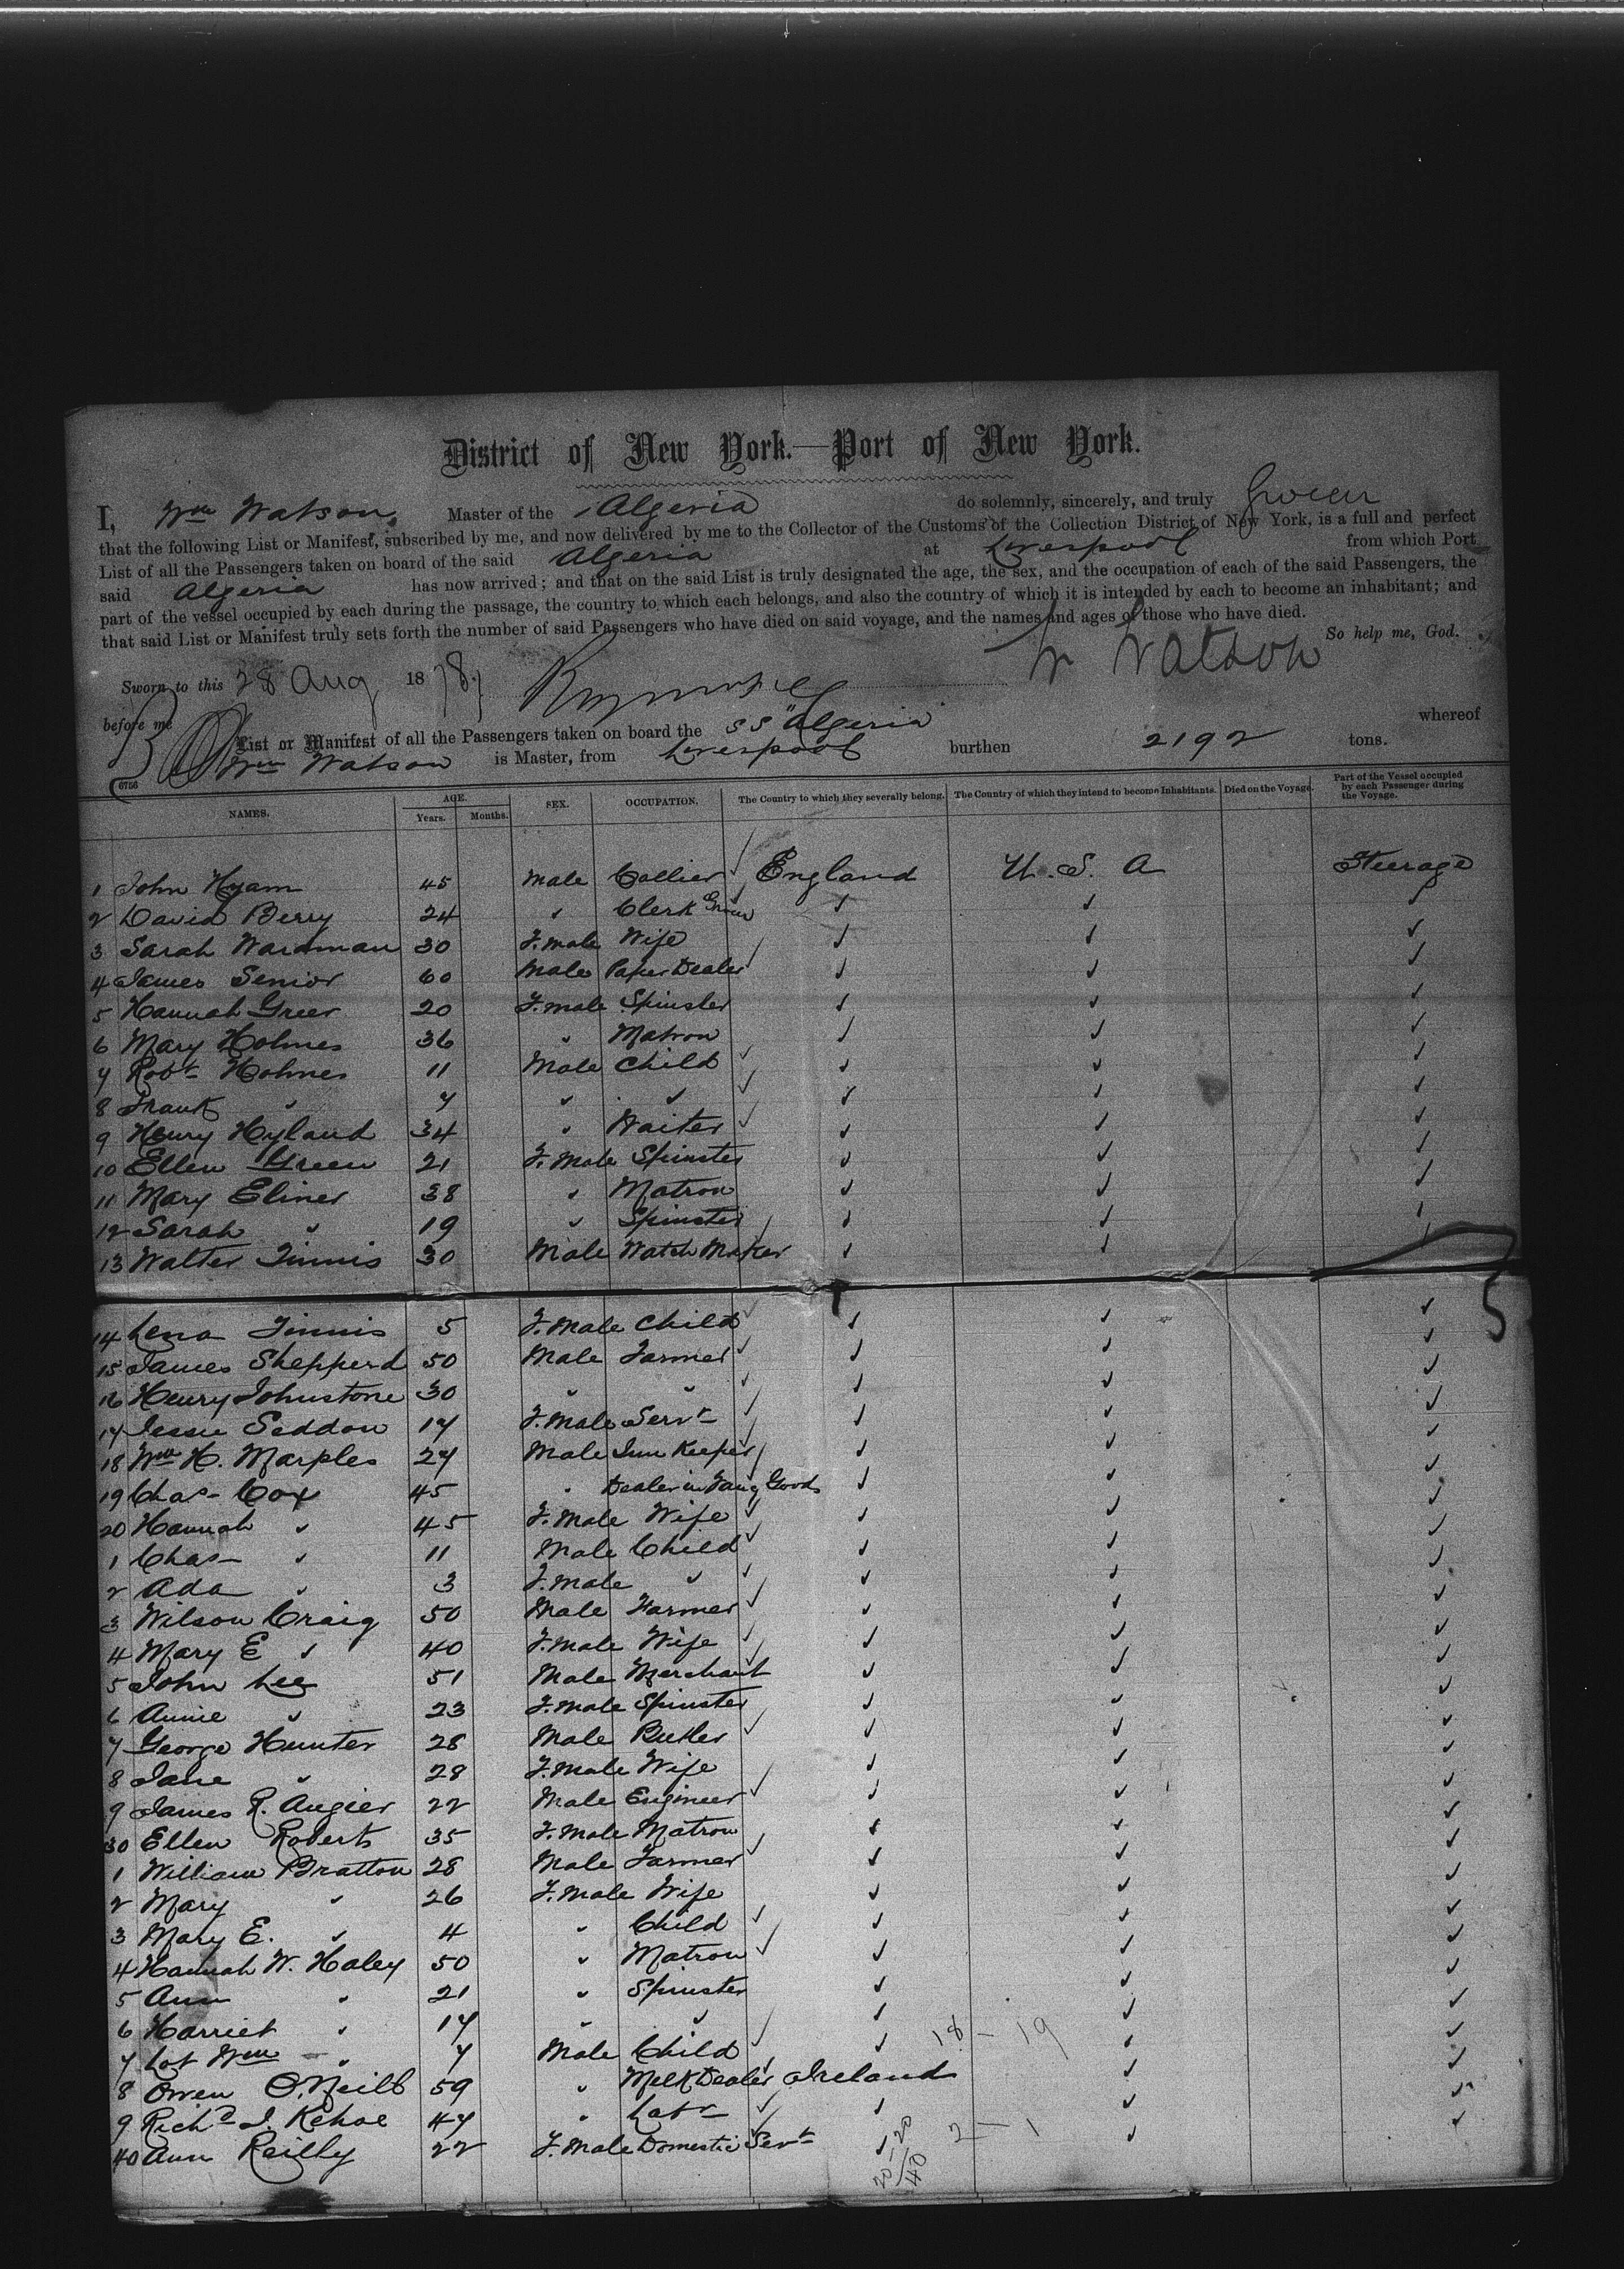 District of New York.—Port of New York.
I, Wm Watson, Master of the Algeria do solemnly, sincerely, and truly Swear
that the following List or Manifest, subscribed by me, and now delivered by me to the Collector of the Customs of the Collection District of New York, is a full and perfect
List of all the Passengers taken on board of the said Algeria at Liverpool from which Port
said Algeria has now arrived; and that on the said List is truly designated the age, the sex, and the occupation of each of the said Passengers, the
part of the vessel occupied by each during the passage, the country to which each belongs, and also the country of which it is intended by each to become an inhabitant; and
that said List or Manifest truly sets forth the number of said Passengers who have died on said voyage, and the names and ages of those who have died.
So help me, God.
Sworn to this 28 Aug 1878 W Watson
before me
List or Manifest of all the Passengers taken on board the SS "Algeria" whereof
Wm Watson is Master, from Liverpool burthen 2192 tons.
6756
NAMES. AGE. Years. Months. SEX. OCCUPATION. The Country to which they severally belong. The Country of which they intend to become Inhabitants. Died on the Voyage. Part of the Vessel occupied by each Passenger during the Voyage.
1 John Hyam 45 Male Collier England U.S.A Steerage
2 David Berry 24 " Clerk
3 Sarah Wardman 30 F.male Wife
4 James Senior 60 Male Paper Dealer
5 Hannah Greer 20 F.male Spinster
6 Mary Holmes 36 " Matron
7 Robt Holmes 11 Male Child
8 Frank " 7 " "
9 Henry Hyland 34 " Waiter
10 Ellen Green 21 F.male Spinster
11 Mary Eliner 38 " Matron
12 Sarah " 19 " Spinster
13 Walter Tinnis 30 Male Watch Maker
14 Lena Tinnis 5 F.male Child
15 James Shepperd 50 Male Farmer
16 Henry Johnstone 30 " "
17 Jessie Seddon 17 F.male Servt
18 Wm H. Marples 27 Male Inn Keeper
19 Chas Cox 45 " Dealer in Fancy Goods
20 Hannah " 45 F.male Wife
1 Chas " 11 Male Child
2 Ada " 3 F.male "
3 Wilson Craig 50 Male Farmer
4 Mary E " 40 F.male Wife
5 John Lee 51 Male Merchant
6 Annie " 23 F.male Spinster
7 George Hunter 28 Male Butler
8 Jane " 28 F.male Wife
9 James R. Augier 22 Male Engineer
30 Ellen Roberts 35 F.male Matron
1 William Bratton 28 Male Farmer
2 Mary " 26 F.male Wife
3 Mary E. " 4 " Child
4 Hannah W. Haley 50 " Matron
5 Ann " 21 " Spinster
6 Harriet " 17 " "
7 Lot Wm " 7 Male Child 18 - 19
8 Owen O.Neill 59 " Milk Dealer Ireland
9 Richd J. Kehoe 47 " Labr
40 Ann Reilly 22 F.male Domestic Servt 20-20 40 2 - 1